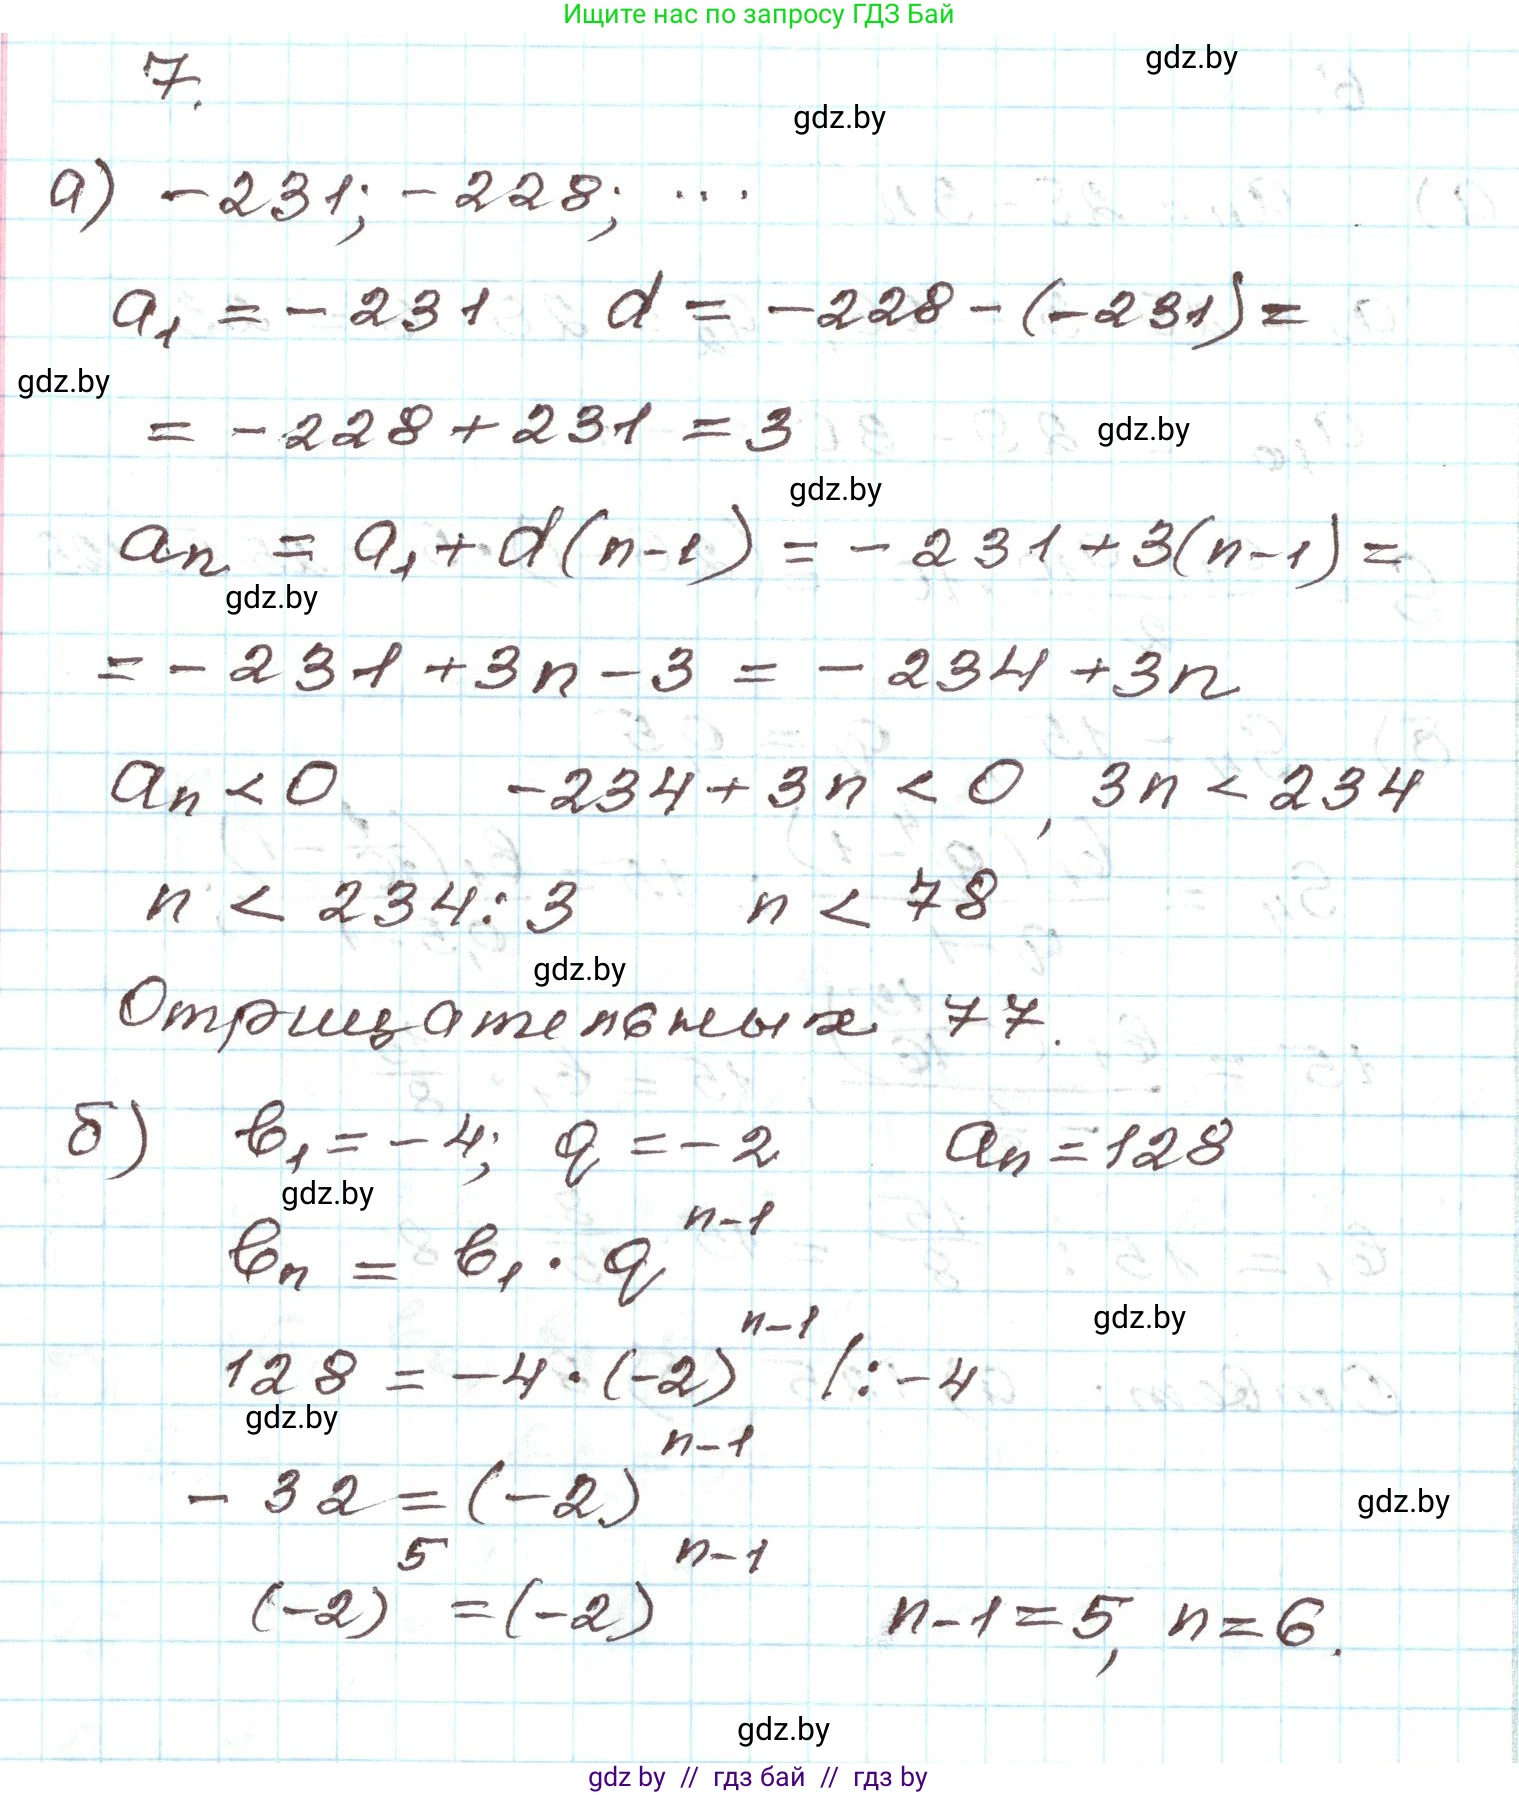 Ищите нас по запросу ГДЗ Бай
7.
gdz.by
gdz.by
а) -231; -228; ...
a₁ = -231 d = -228 - (-231) =
gdz.by
= -228 + 231 = 3
gdz.by
gdz.by
aₙ = a₁ + d(n-1) = -231 + 3(n-1) =
gdz.by
= -231 + 3n - 3 = -234 + 3n
aₙ < 0 -234 + 3n < 0, 3n < 234
n < 234 : 3 n < 78
gdz.by
Отрицательных 77.
б) b₁ = -4; q = -2 aₙ = 128
gdz.by
bₙ = b₁ · qⁿ⁻¹
gdz.by
128 = -4 · (-2)ⁿ⁻¹ /: -4
gdz.by
-32 = (-2)ⁿ⁻¹
gdz.by
(-2)⁵ = (-2)ⁿ⁻¹ n-1 = 5, n = 6.
gdz.by
gdz by // гдз бай // гдз by